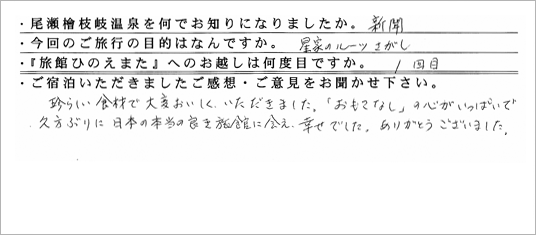 ・尾瀬檜枝岐温泉を何でお知りになりましたか。 新聞
・今回のご旅行の目的はなんですか。 星家のルーツさがし
・『旅館ひのえまた』へのお越しは何度目ですか。 1回目
・ご宿泊いただきましたご感想・ご意見をお聞かせ下さい。
珍らしい食材で大変おいしくいただきました。「おもてなし」の心がいっぱいで
久方ぶりに日本の本当の良き旅館に会え、幸せでした。ありがとうございました。